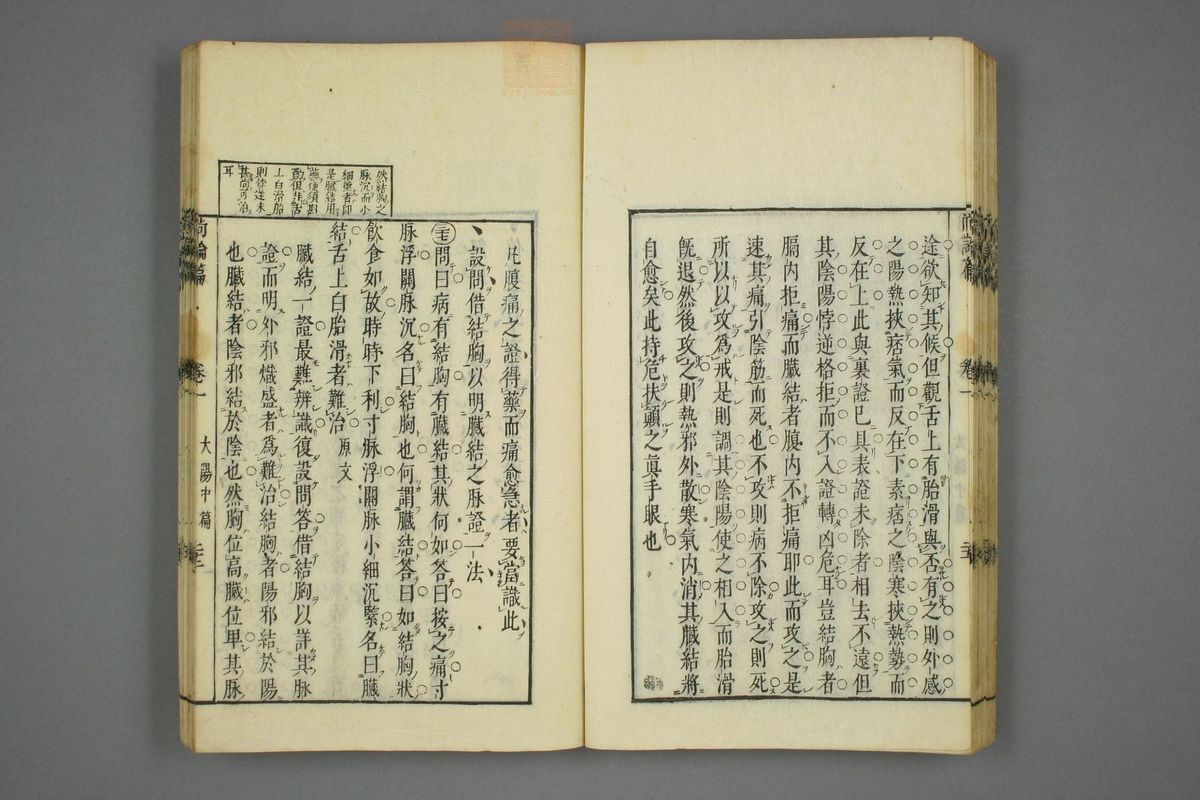 途欲知其候但觀舌上有胎滑與否有之則外感
之陽熱挾痞氣而反在下素痞之陰寒挾熱勢而
反在上此與裏證已具表證未除者相去不遠但
其陰陽悖逆格拒而不入證轉凶危耳豈結胸者
膈內拒痛而臟結者腹內不拒痛耶此而攻之是
速其痛引陰筋而死也不攻則病不除攻之則死
所以以攻為戒是則調其陰陽使之相入而胎滑
旣退然後攻之則熱邪外散寒氣內消其臟結將
自愈矣此持危扶顛之眞手眼也
尚論篇
卷一
然結胸之
脉沉而小
細緊者卽
是臟結用
藥便須斟
酌但非舌
上白滑胎
則悖逆未
甚尚可治
耳
凡腹痛之證得藥而痛愈急者要當識此
設問借結胸以明臟結之脉證一法
問曰病有結胸有臟結其狀何如答曰按之痛寸
脉浮關脉沉名曰結胸也何謂臟結答曰如結胸狀
飲食如故時時下利寸脉浮關脉小細沉緊名曰臟
結舌上白胎滑者難治 原文
臟結一證最難辨識復設問答借結胸以詳其脉
證而明外邪熾盛者為難治結胸者陽邪結於陽
也臟結者陰邪結於陰也然胸位高臟位卑其脉
尚論篇
卷一
太陽中篇